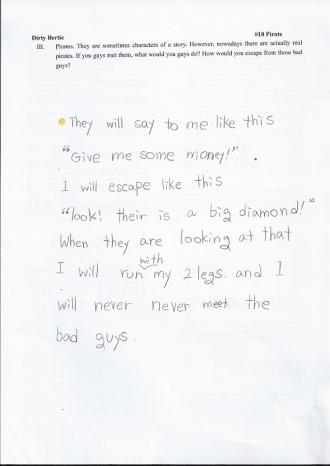 Dirty Bertie #18 Pirate
III. Pirates. They are sometimes characters of a story. However, nowadays there are actually real
pirates. If you guys met them, what would you guys do? How would you escape from those bad
guys?
They will say to me like this
"Give me some money!" .
I will escape like this
"look! their is a big diamond!"
When they are looking at that
with
I will run my 2 legs. and I
will never never meet the
bad guys.